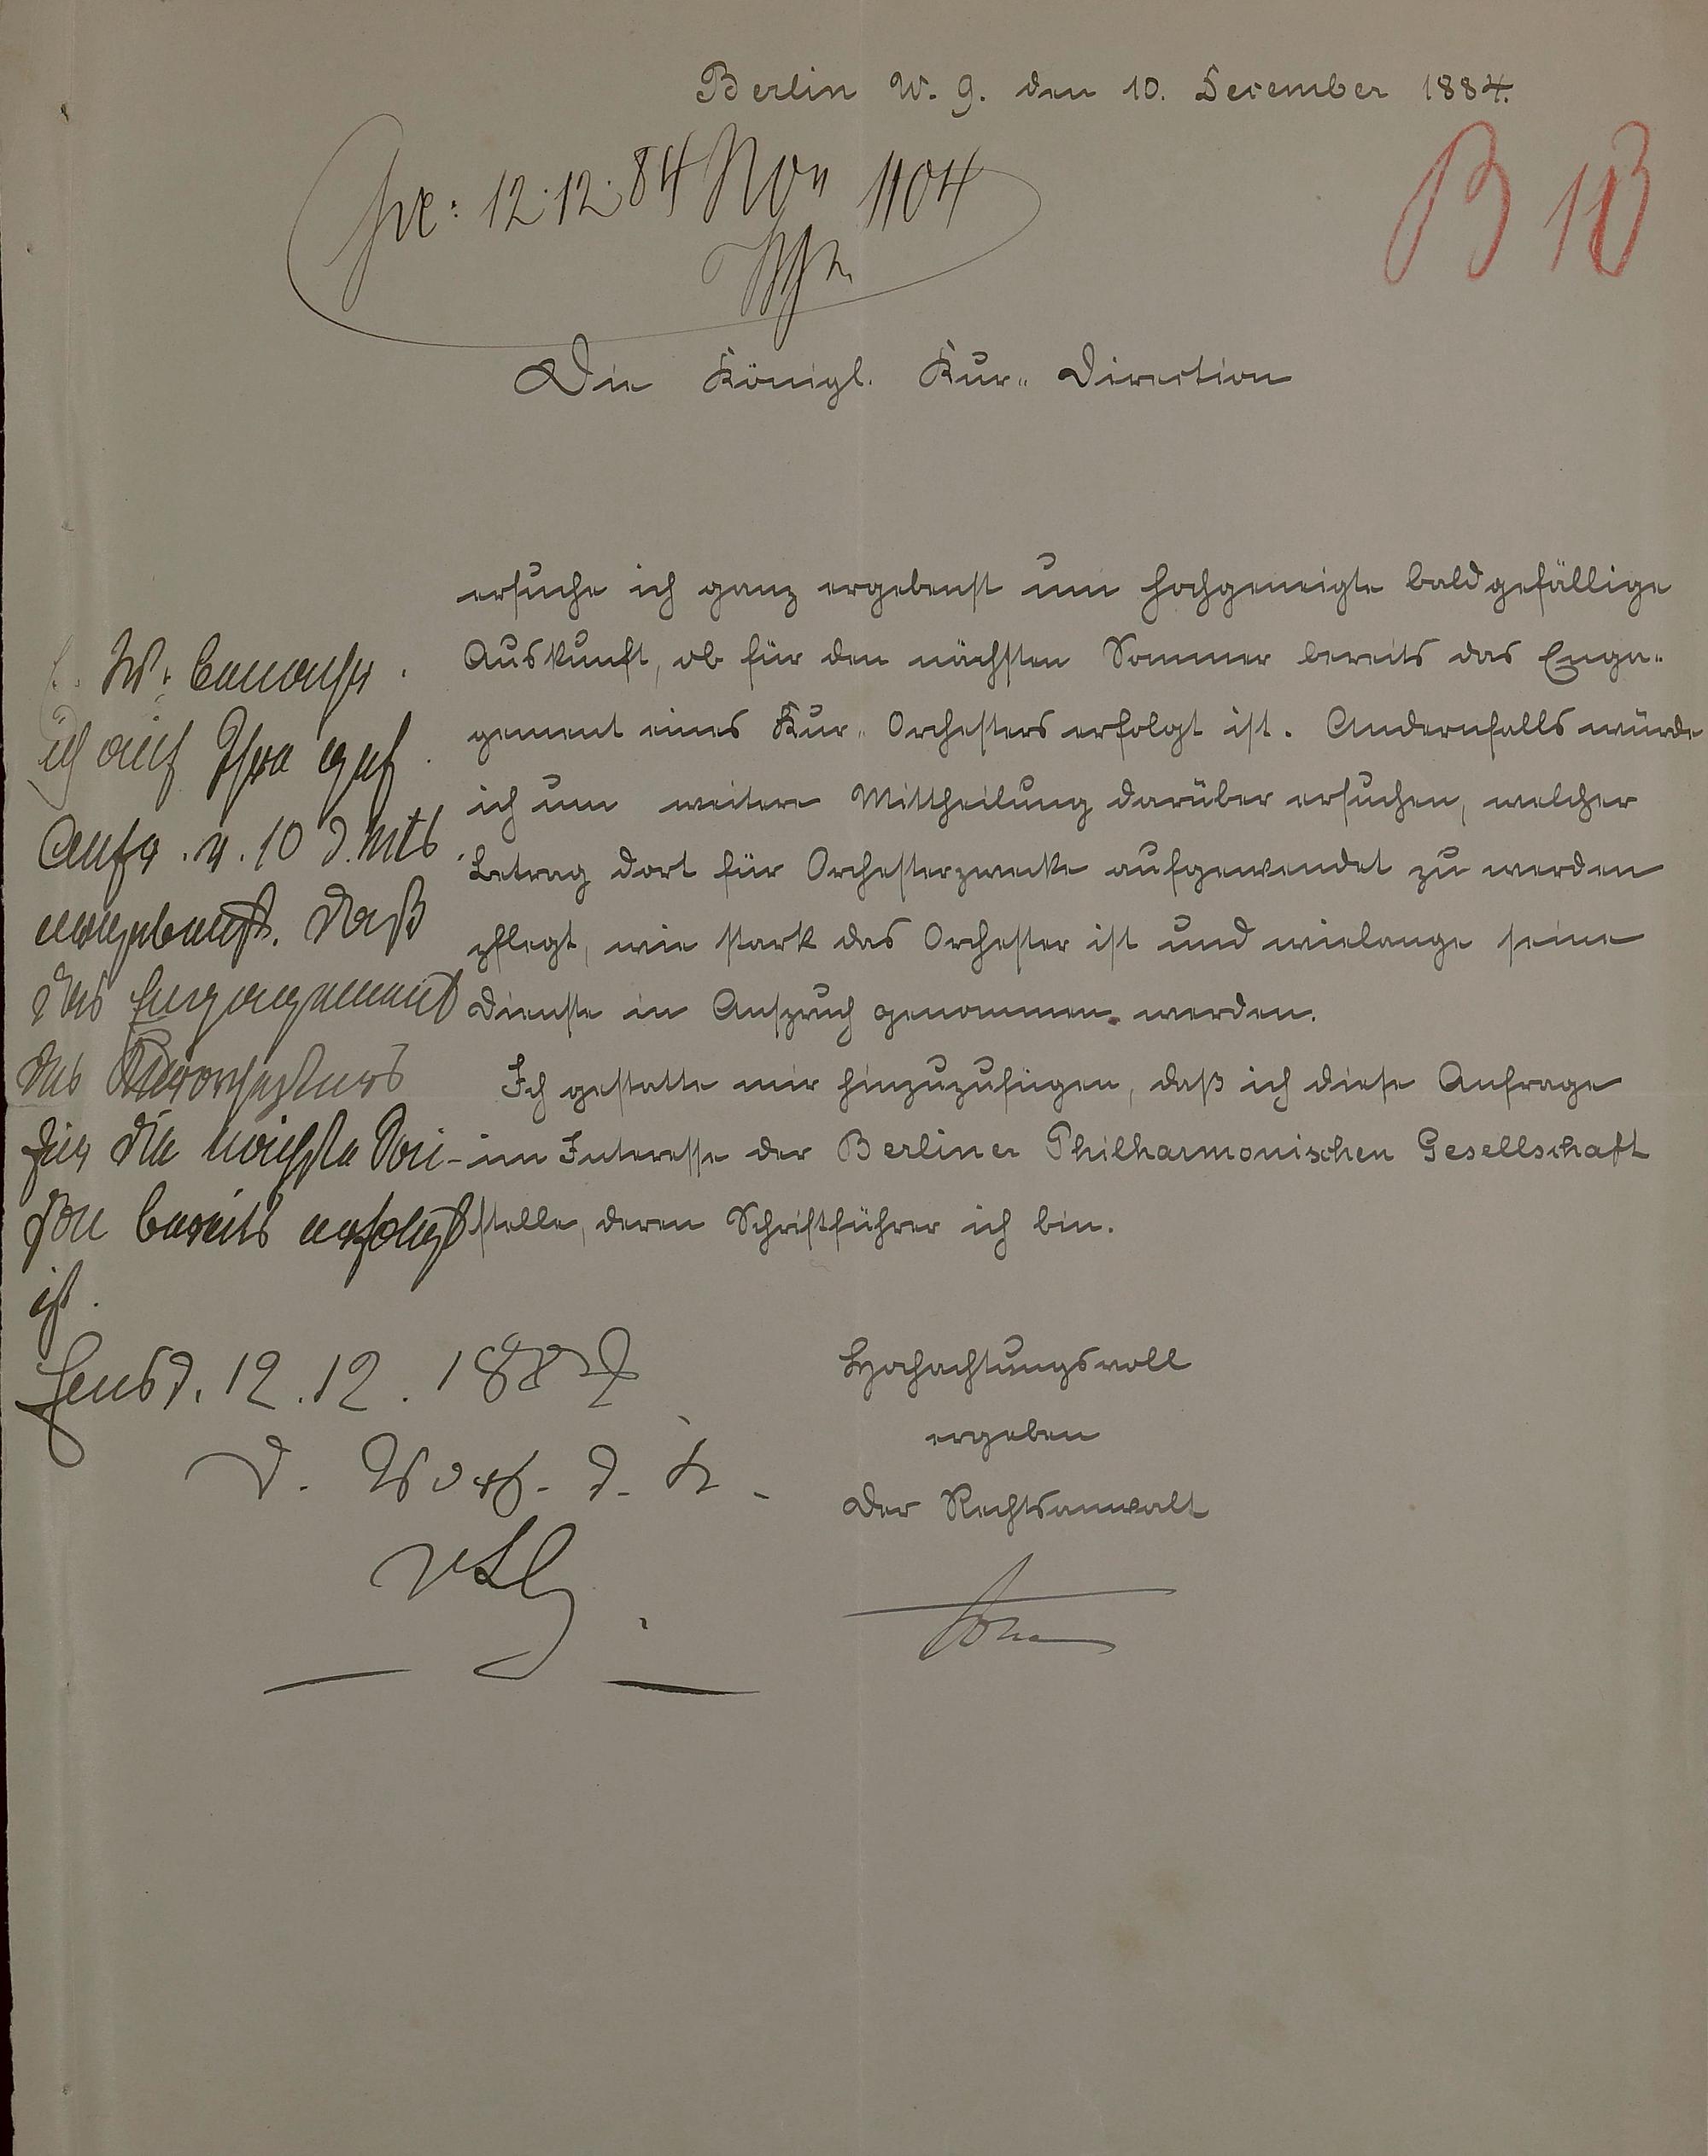 Berlin W. 9. den 10. December 1884.
12.12.84 Non 1104
B 10
Die Königl. Kur-Direction
ersuche ich ganz ergebenst um hochgeneigte baldgefällige
Auskunft, ob für den nächsten Sommer bereits das Enga-
gement eines Kur-Orchesters erfolgt ist. Andernfalls würde
ich um weitere Mittheilung darüber ersuchen, welcher
Betrag dort für Orchesterzwecke aufgewendet zu werden
pflegt, wie stark das Orchester ist und wielange seine
Dienste in Anspruch genommen werden.
Ich gestatte mir hinzuzufügen, daß ich diese Anfrage
im Interesse der Berliner Philharmonischen Gesellschaft
stelle, deren Schriftführer ich bin.
Hochachtungsvoll
ergeben
Der Rechtsanwalt
W.
ich auf Ihre gef.
Anfr. v. 10 d. Mts.
ergebenst, daß
das Engagement
des Kurorchesters
für die nächste Sai-
son bereits erfolgt
ist.
12.12.1884